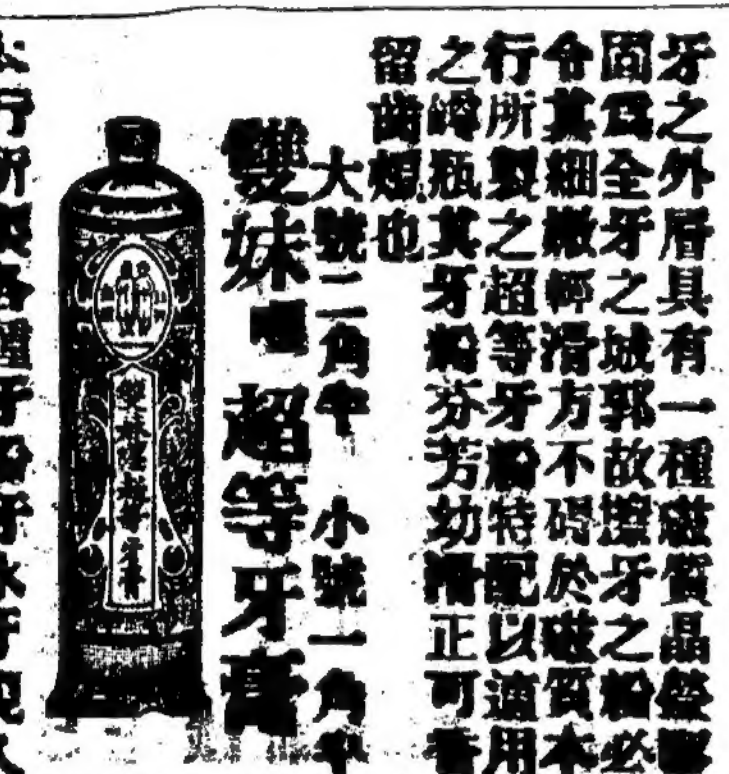 牙之外層具有一種磁質晶瑩堅
固爲全牙之城郭故擦牙之粉必
令其細嫩輕滑方不碍於磁質本
行所製之超等牙粉特配以適用
之罇瓶其牙粉芬芳幼滑正可香
留齒頰也
大號二角半 小號一角半
雙妹嘜 超等牙膏
雙妹嘜超等牙膏
行所製各種牙粉牙水牙